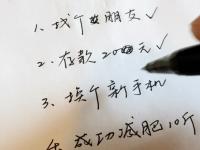 1、找个朋友✓
2、存款20元✓
3、换个新手机
成功减肥10斤